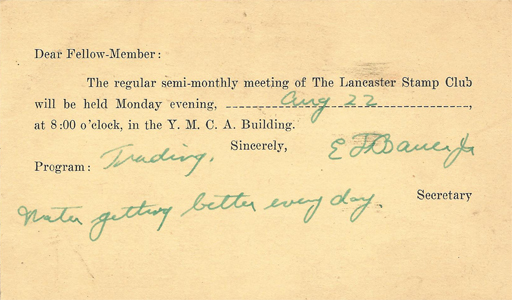 Dear Fellow-Member:
The regular semi-monthly meeting of The Lancaster Stamp Club
will be held Monday evening, Aug 22,
at 8:00 o'clock, in the Y. M. C. A. Building.
Sincerely,
Program: Trading. E Bauer Jr
Secretary
getting better every day.